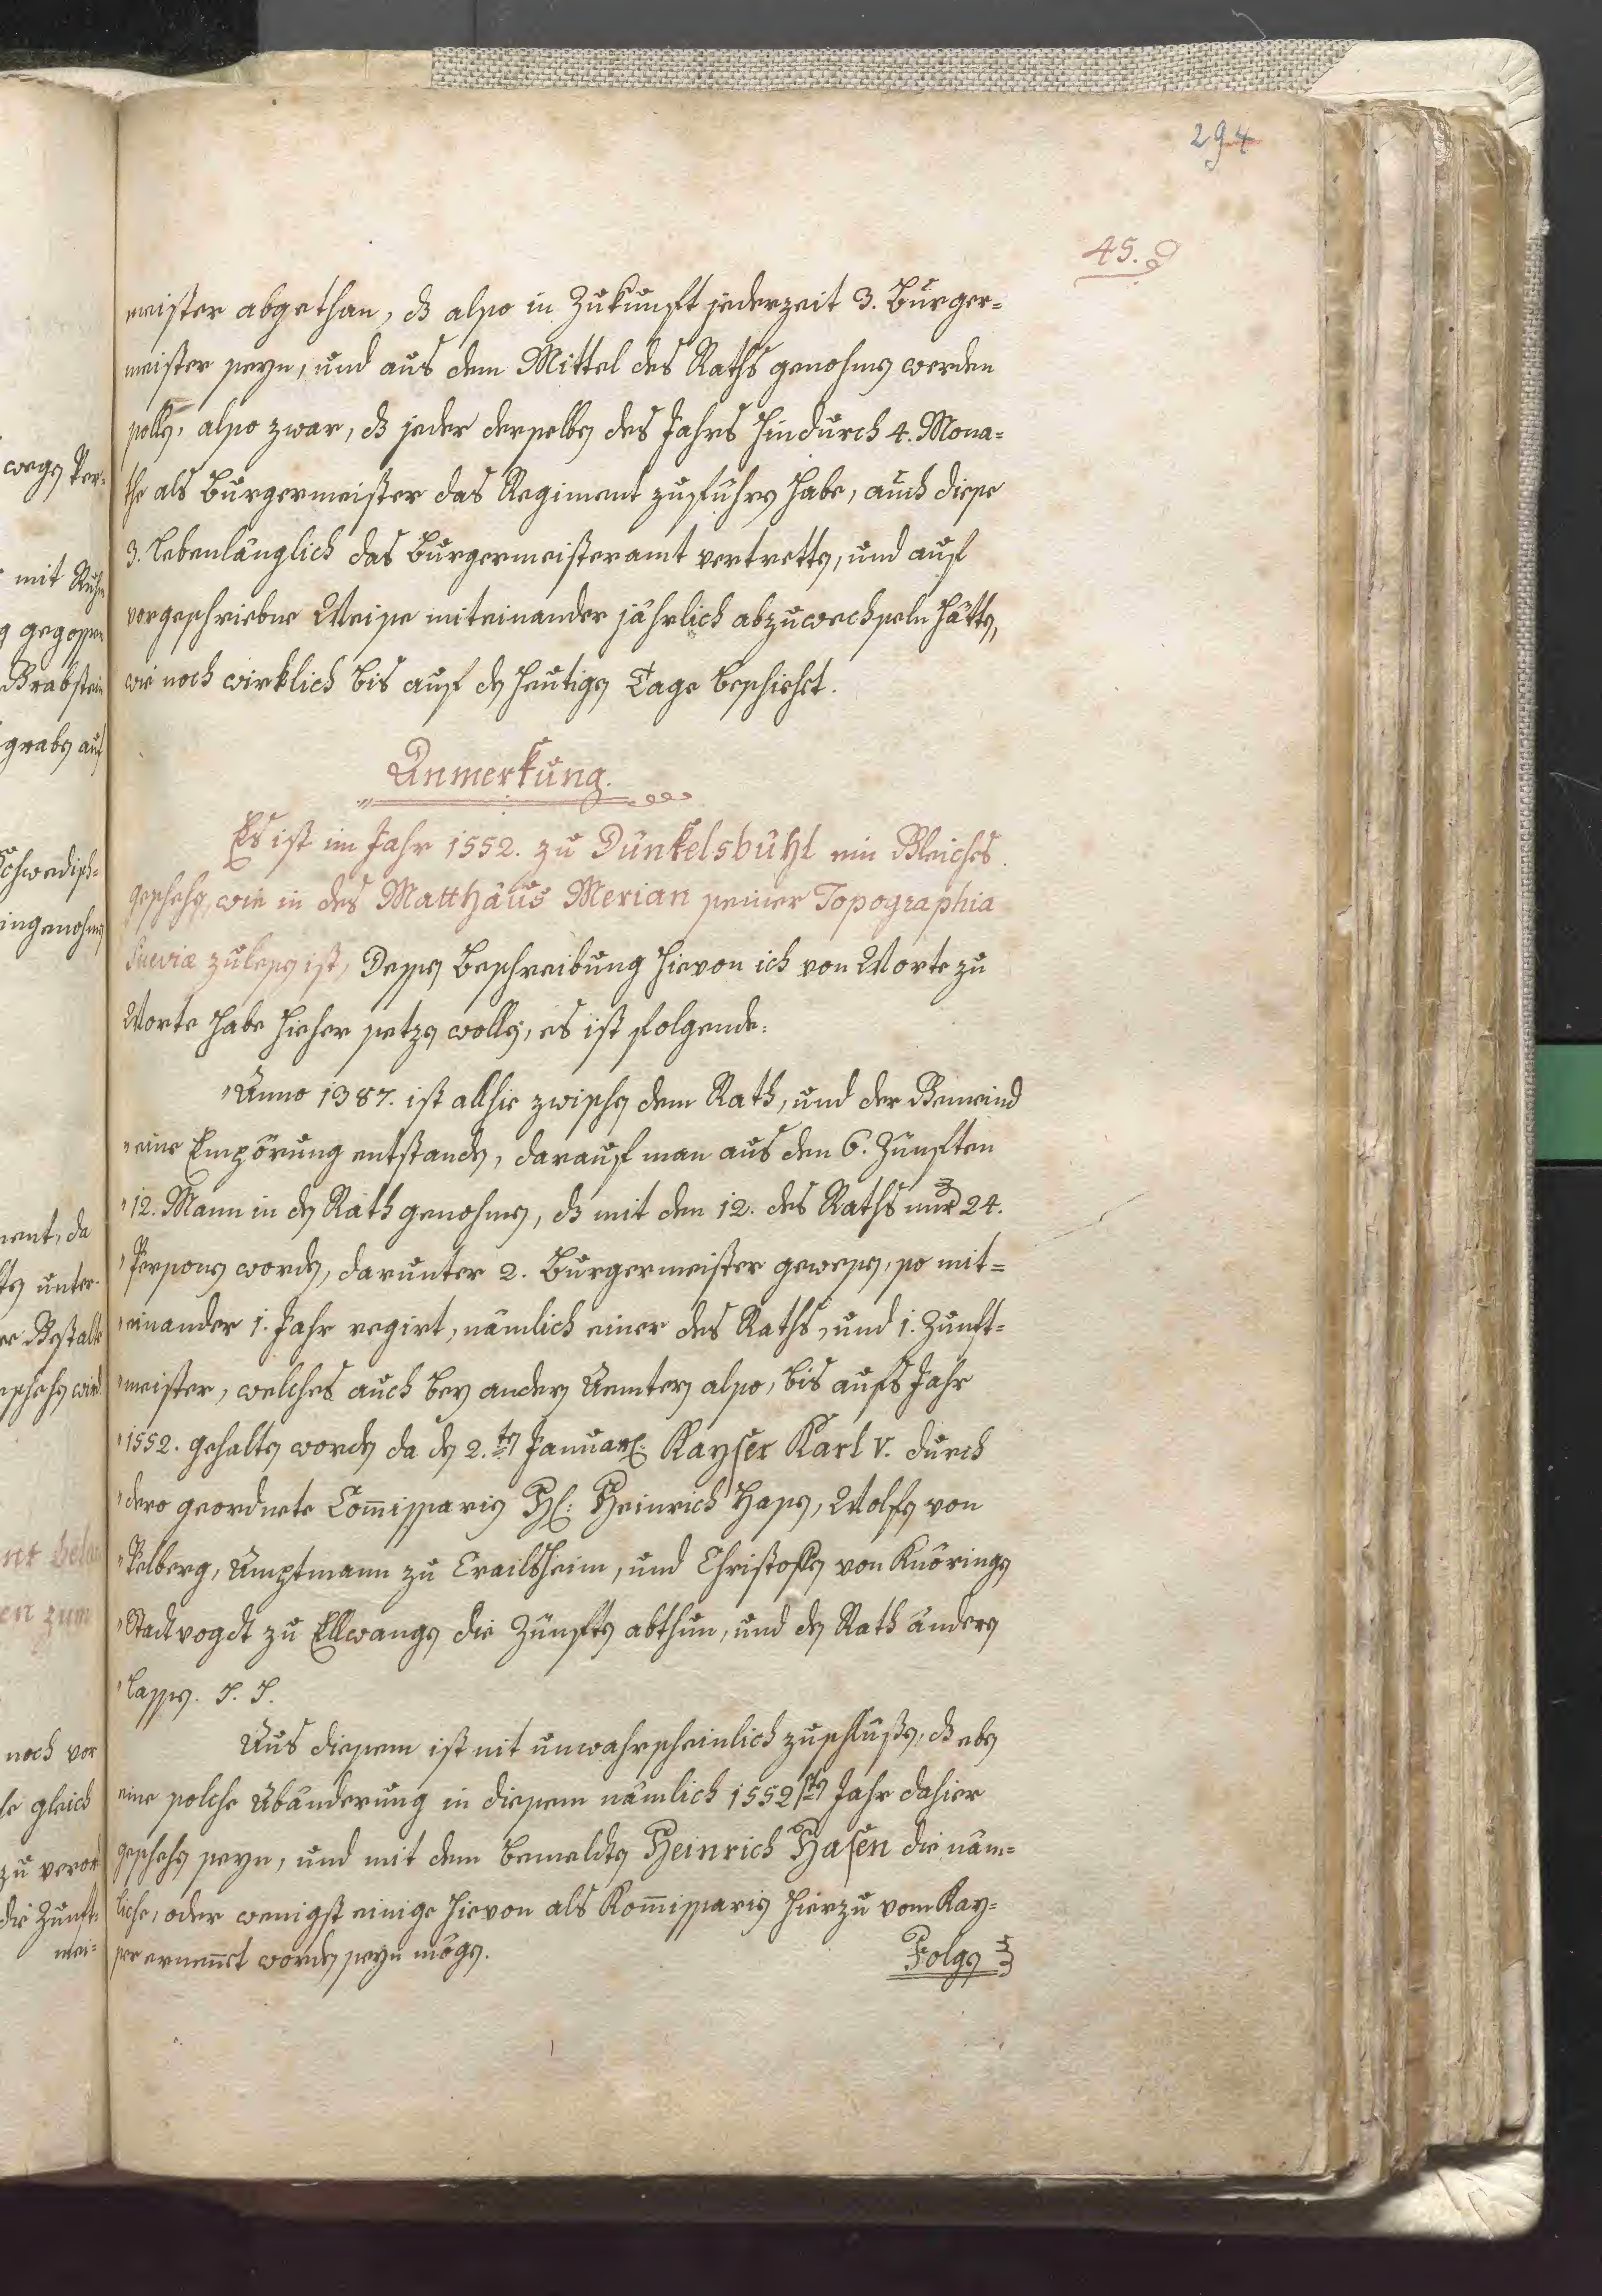 294
45.
meister abgethan, dß also in Zukunft jederzeit 3. Burger=
meister seyn, und aus dem Mittel des Raths genohmen werden
sollen, also zwar, dß jeder derselben des Jahrs hindurch 4. Mona=
the als Burgermeister das Regiment zuführen habe, auch diese
3. lebenlänglich das Burgermeisteramt vertretten, und auf
vorgeschriebne Weise miteinander jährlich abzuwechseln hätten,
wie noch wirklich bis auf den heutigen Tage beschieht.
Anmerkung.
Es ist im Jahr 1552. zu Dünkelsbühl ein Gleiches
geschehen, wie in des Matthäus Merian seiner Topographia
Sueviæ zulesen ist, Dessen Beschreibung hievon ich von Worte zu
Worte habe hieher setzen wollen, es ist folgende:
"Anno 1387. ist allhie zwischen dem Rath, und der Gemeind
"eine Empörung entstanden, darauf man aus den 6. Zünften
"12. Mann in den Rath genohmen, dß mit den 12. des Raths 24.
"Personen worden, darunter 2. Burgermeister gewesen, so mit=
"einander 1. Jahr regirt, nämlich einer des Raths, und 1. Zunft=
"meister, welches auch bey andern Aemtern also, bis aufs Jahr
"1552. gehalten worden da den 2.ten Januar: Kayser Karl V. durch
"dero geordnete Commissarien H: Heinrich Hasen, Wolfen von
"Velberg, Amptmann zu Crailsheim, und Christoffen von Knöringen
"Stadtvogdt zu Ellwangen die Zünften abthun, und den Rath ändern
"lassen. S. S.
Aus diesem ist nit unwahrscheinlich zuschlüßen, dß eben
eine solche Abänderung in diesem nämlich 1552sten Jahr dahier
geschehen seyn, und mit dem bemeldten Heinrich Hasen die näm=
liche, oder wenigst einige hievon als Kommissarien hierzu vom Kay=
ser ernennt worden seyn mögen.
Folgen